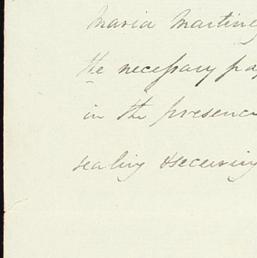 Maria Martine
the necessary pa
in the presence
sealing & securing